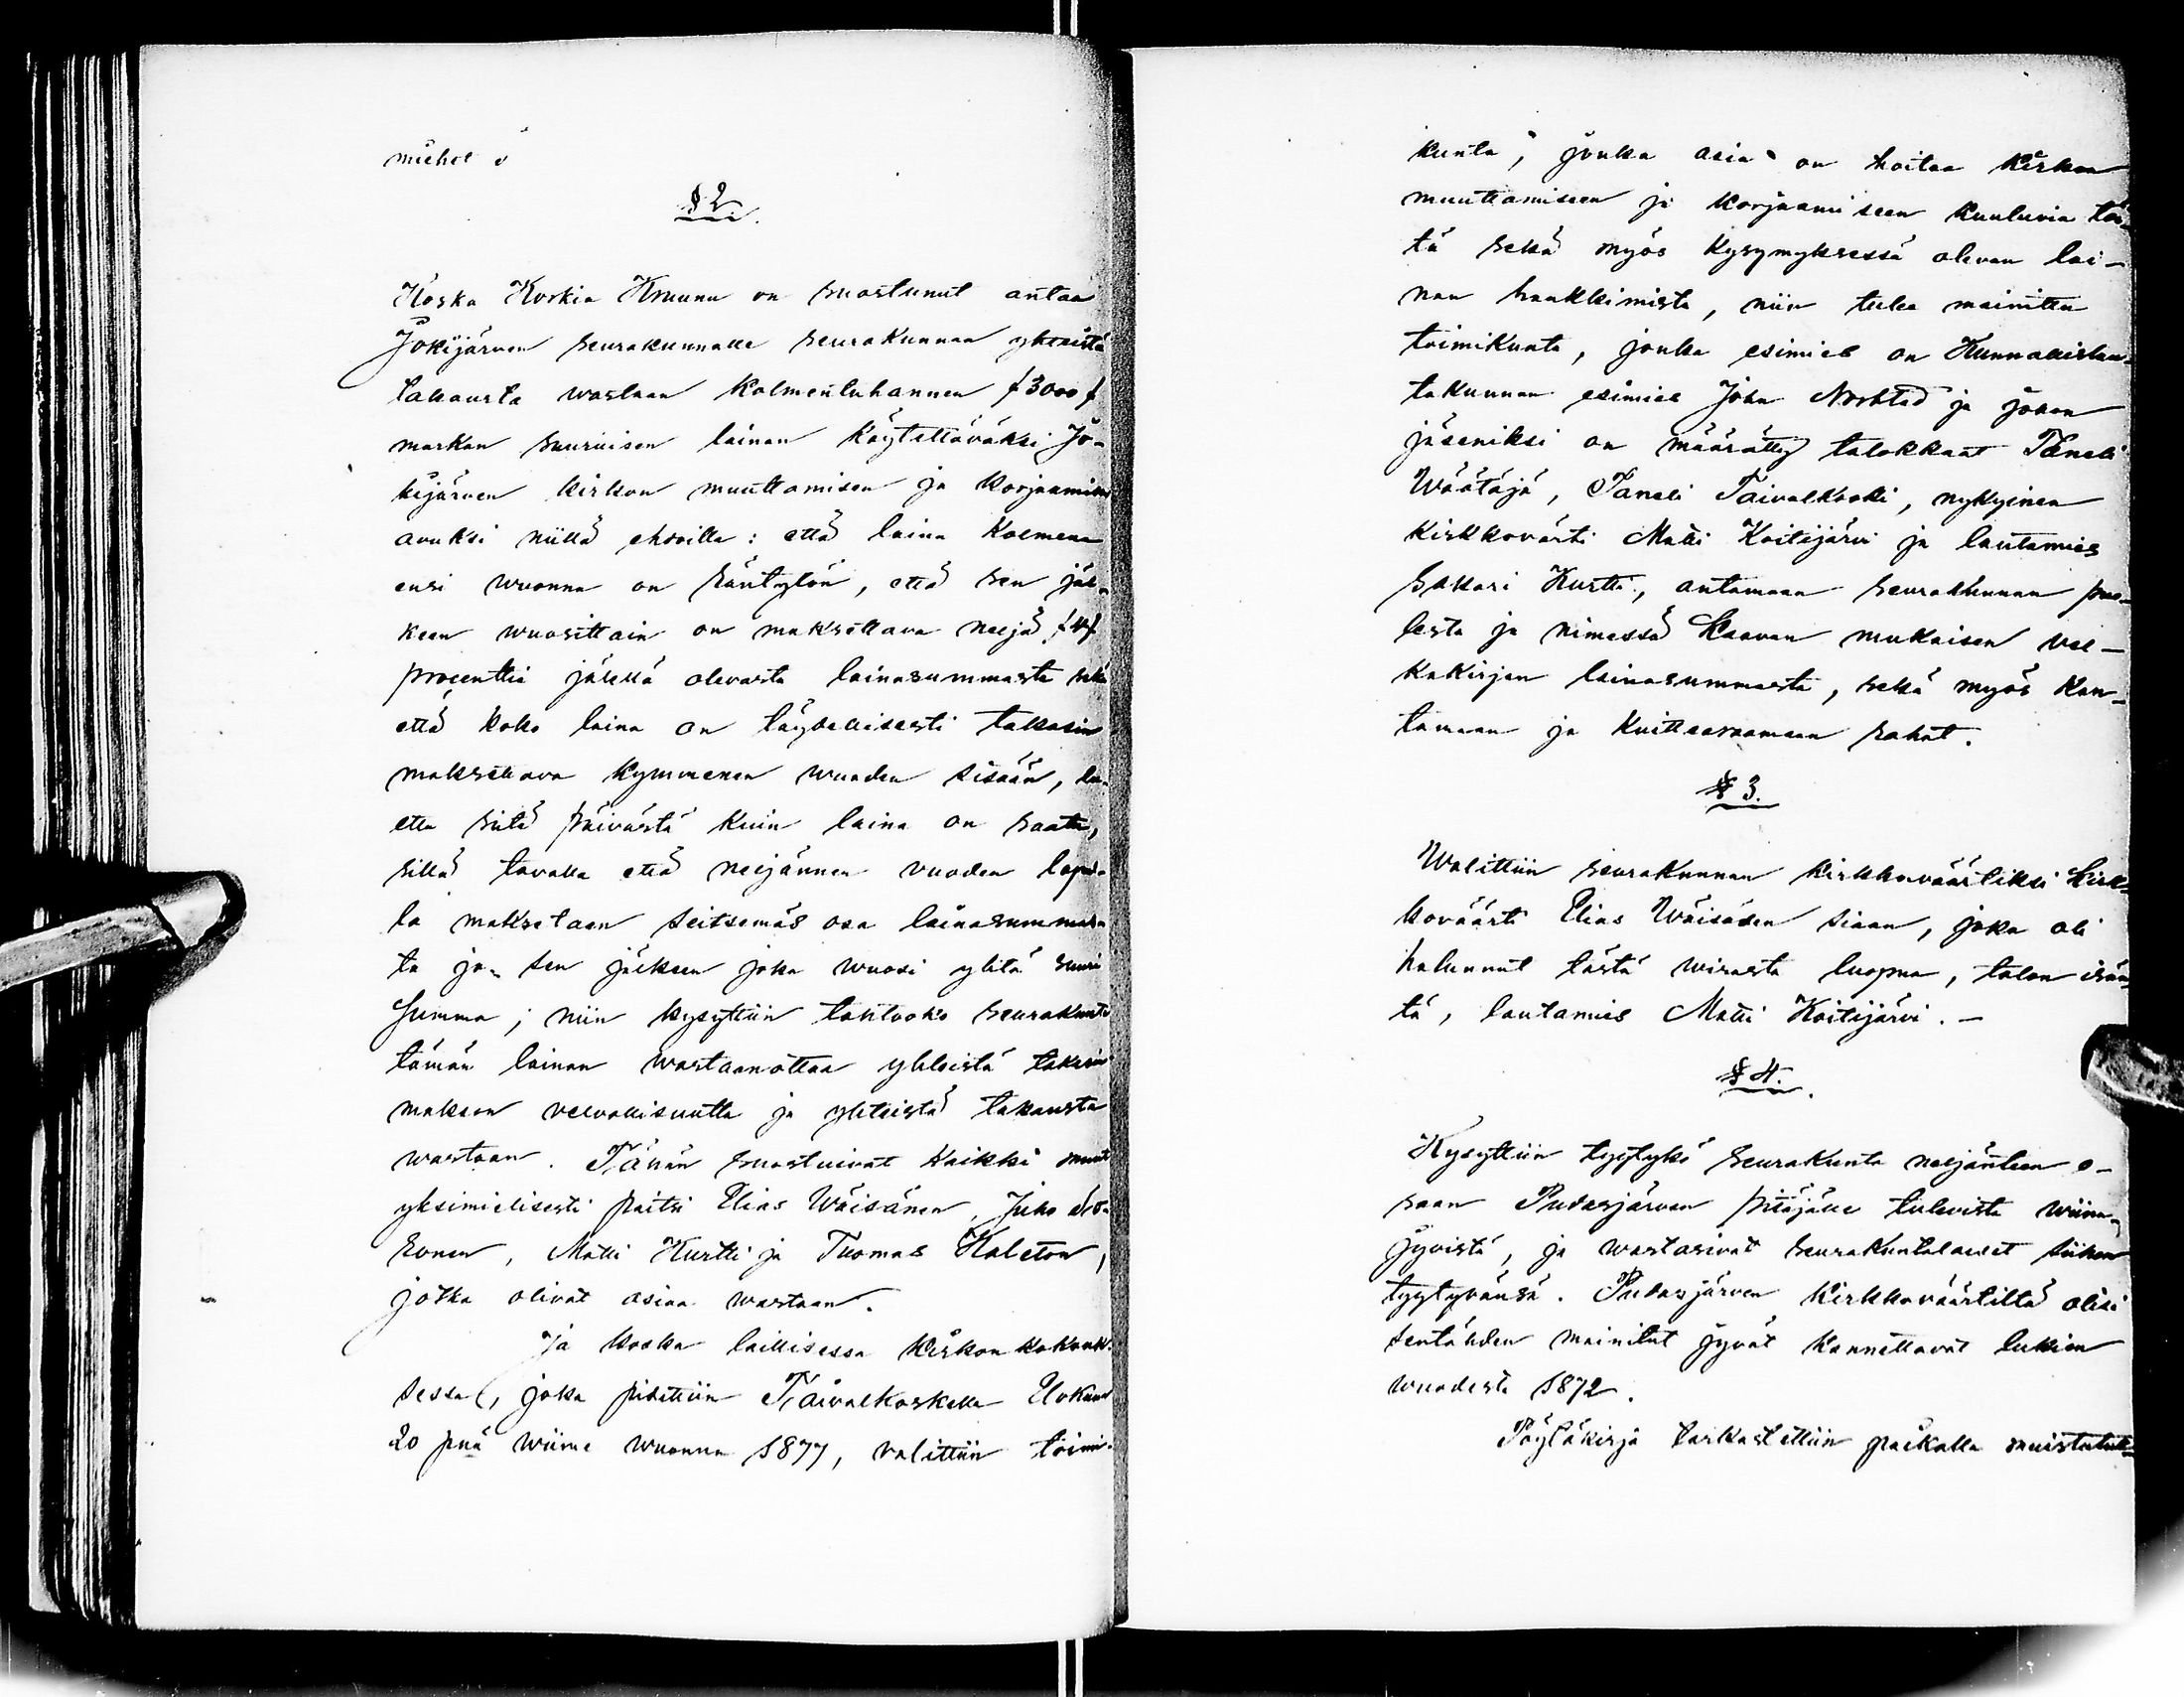 miehet
§ 2.
Koska Korkia Kruunu on suostunut antaa
Jokijärven seurakunnalle seurakunnan yhteistä
takausta wastaan kolmentuhannen /3000/
markan suuruisen lainan käytettäväksi Jo-
kijärven kirkon muuttamisen ja korjaamisen
avuksi niillä ehdoilla: että laina kolmena
ensi wuonna on köntytön, että sen jäl-
keen wuosittain on maksettava neljä /4/
procenttia jälellä olevasta lainasummasta sekä
että koko laina on täydellisesti takasin
maksettava kymmenen wuoden sisään, lu-
ettu siitä päivästä kuin laina on saatu,
sillä tavalla että neljännen vuoden lopul-
la maksetaan seitsemäs osa lainasummas-
ta ja sen jälkeen joka wuosi yhtä suuri
Summa; niin kysyttiin tahtooko seurakunta
tämän lainan wastaanottaa yhteistä takasin
maksun velvollisuutta ja yhteistä takausta
wastaan. Tähän suostuivat kaikki muut
yksimielisesti paitsi Elias Wäisänen, Juho
Matti Kurtti ja Tuomas
jotka olivat asiaa wastaan.
Ja koska laillisessa kirkon kokouk-
sessa, joka pidettiin Taivalkoskella Elokuun
20 pnä wiime wuonna 1877, valittiin toimi-
kunta, jonka asia on hoitaa kirkon
muuttamiseen ja korjaamiseen kuuluvia töi-
tä sekä myös kysymyksessä olevan lai-
nan hankkimista, niin tulee mainitun
toimikunta, jonka esimies on Kunnallislau-
takunnan esimies John ja johon
jäseniksi on määrätty talokkaat Taneli
Wäätäjä, Taneli Taivalkoski, nykyinen
kirkkovärti Matti Koitijärvi ja lautamies
Sakari Kurtti, antamaan seurakunnan puo-
lesta ja nimessä Laavan mukaisen vel-
kakirjan lainasummasta, sekä myös kan-
tamaan ja kuitteeraamaan rahat.
§ 3.
Walittiin seurakunnan kirkkoväärtiksi Kirk-
koväärti Elias Wäisäsen siaan, joka oli
halunnut tästä wirasta luopua, talon isän-
tä, lautamies Matti Koitijärvi. —
§ 4.
Kysyttiin tyytykö seurakunta neljänteen o-
saan Pudasjärven pitäjälle tulevista wiina-
jyvistä, ja wastasivat seurakuntalaiset siihen
tyytyvänsä. Pudasjärven Kirkkoväärtiltä olisi
sentähden mainitut jyvät kannettavat lukien
wuodesta 1872.
Pöytäkirja tarkastettiin paikalla muistutuk-